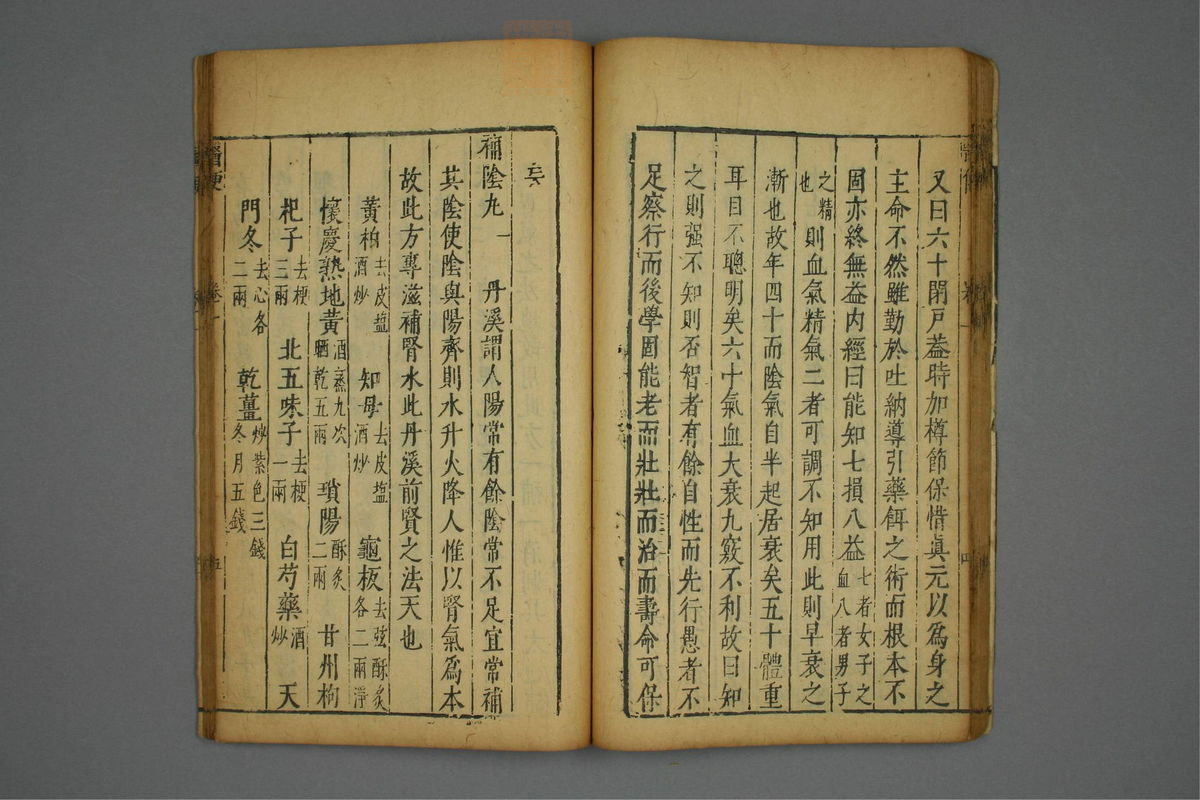 又曰六十閉戸葢時加樽節保惜眞元以爲身之
主命不然雖勤於吐納導引藥餌之術而根本不
固亦終無益内經曰能知七損八益七者女子之血八者男子
之精也則血氣精氣二者可調不知用此則早衰之
漸也故年四十而陰氣自半起居衰矣五十體重
耳目不聰明矣六十氣血大衰九竅不利故曰知
之則强不知則否智者有餘自性而先行愚者不
足察行而後學固能老而壯壯而治而壽命可保
矣
補陰九一 丹溪謂人陽常有餘陰常不足宜常補
其陰使陰與陽齊則水升火降人惟以腎氣爲本
故此方專滋補腎水此丹溪前賢之法天也
黃柏去皮盐酒炒 知母去皮盐酒炒 龜板去弦酥炙各二兩淨
懷慶熟地黃酒蒸九次晒乾五兩 瑣陽酥炙二兩 甘州枸
杞子去梗三兩 北五味子去梗一兩 白芍藥酒炒 天
門冬去心各二兩 乾薑炒紫色三錢冬月五錢
醫便 卷一 五